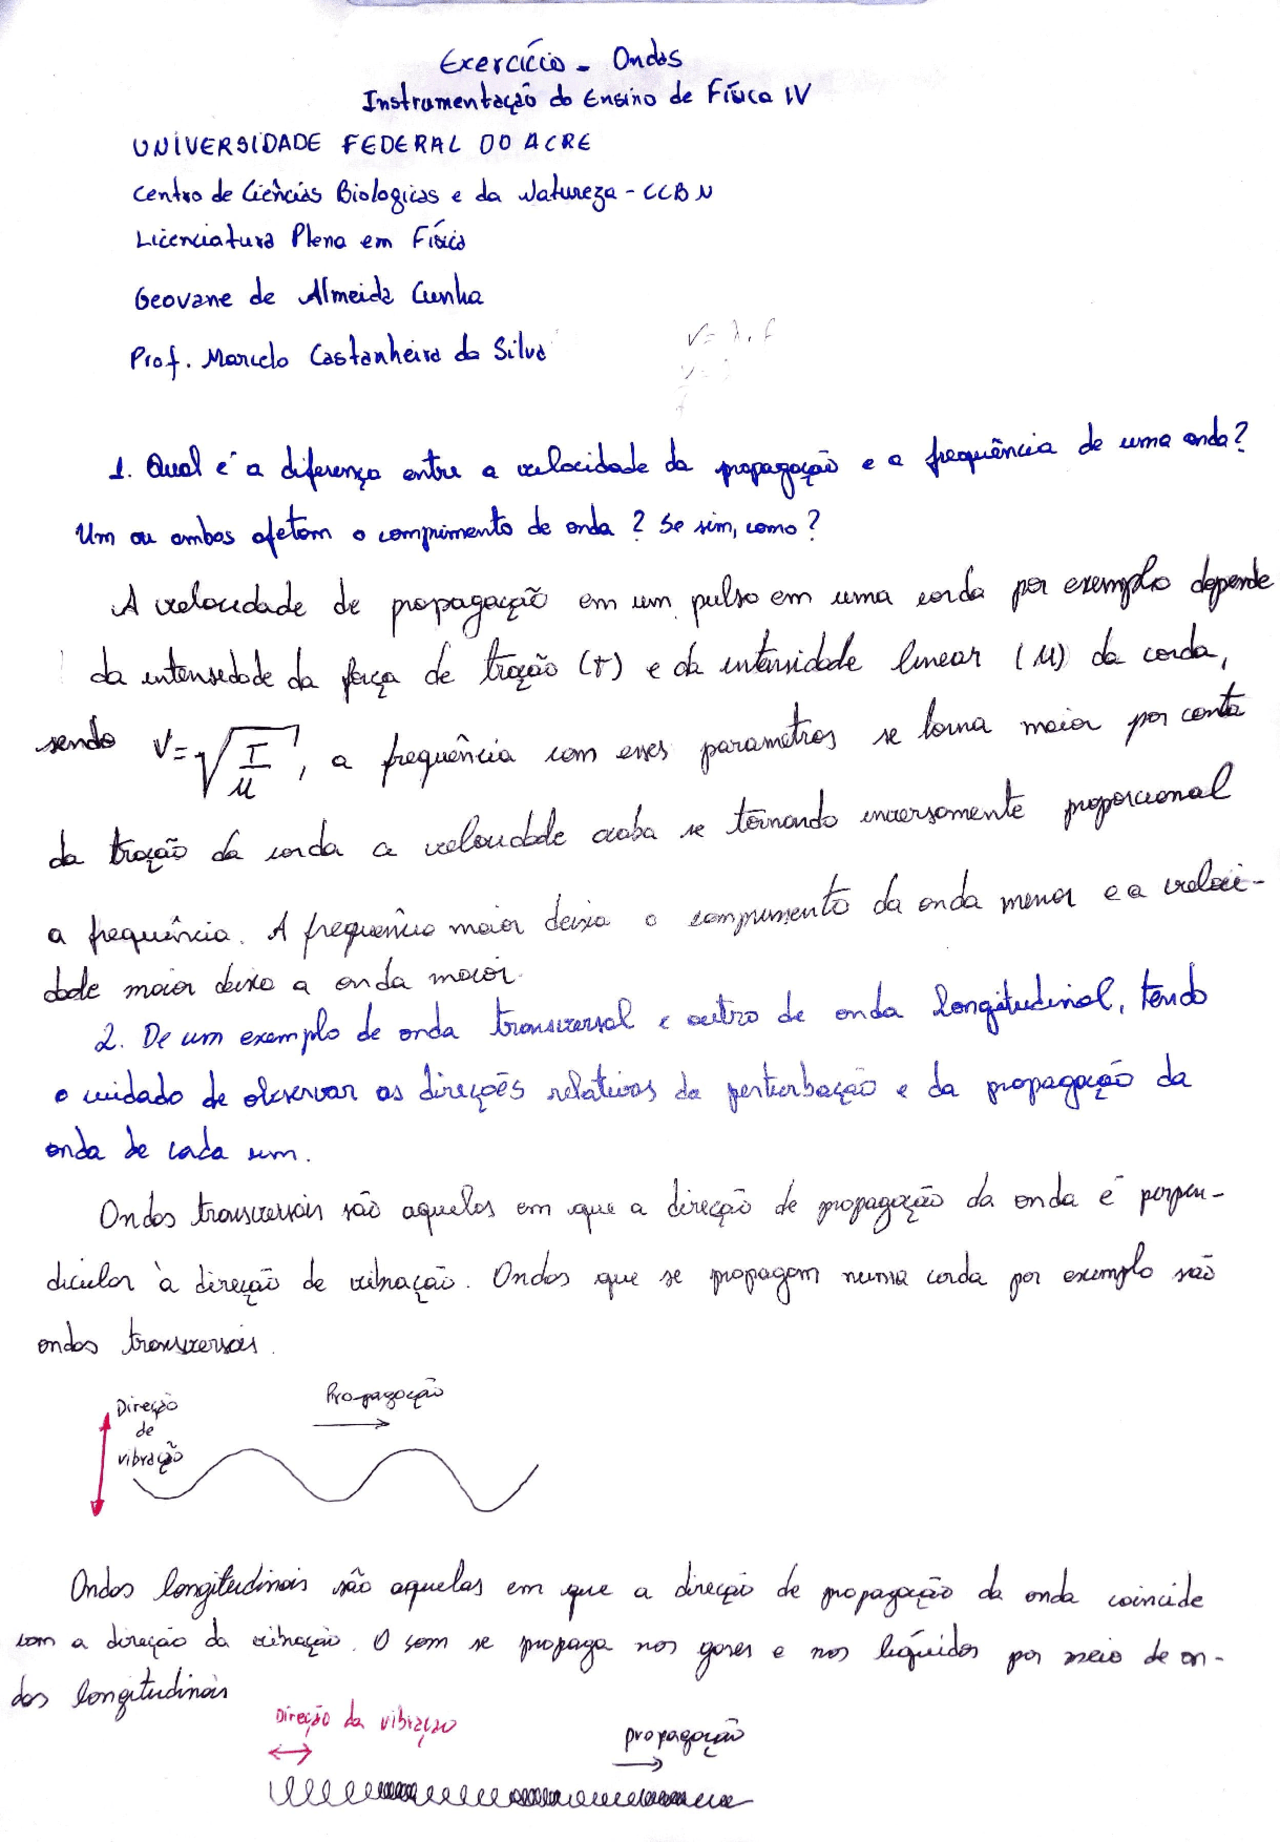 Exercício - Ondas
Instrumentação do Ensino de Física IV
UNIVERSIDADE FEDERAL DO ACRE
Centro de Ciências Biologicas e da Natureza - CCBN
Licenciatura Plena em Física
Geovane de Almeida Cunha
Prof. Marcelo Castanheira da Silva
V = λ . f
1. Qual é a diferença entre a velocidade da propagação e a frequência de uma onda?
Um ou ambos afetam o comprimento de onda? Se sim, como?
A velocidade de propagação em um pulso em uma corda por exemplo depende
da intensedade da força de tração (T) e da intensidade linear (μ) da corda,
sendo V = √T/μ, a frequência com esses parametros se torna maior por conta
da tração da corda a velocidade acaba se tornando inversamente proporcional
a frequência. A frequência maior deixa o comprimento da onda menor e a veloci-
dade maior deixa a onda maior.
2. De um exemplo de onda transversal e outro de onda longitudinal, tendo
o cuidado de observar as direções relativas da perturbação e da propagação da
onda de cada um.
Ondas transversais são aquelas em que a direção de propagação da onda é perpen-
dicular à direção de vibração. Ondas que se propagam numa corda por exemplo são
ondas transversais.
Propagação
Direção
de
vibração
Ondas longitudinais são aquelas em que a direção de propagação da onda coincide
com a direção da vibração. O som se propaga nos gases e nos líquidos por meio de on-
das longitudinais
Direção da vibração
propagação